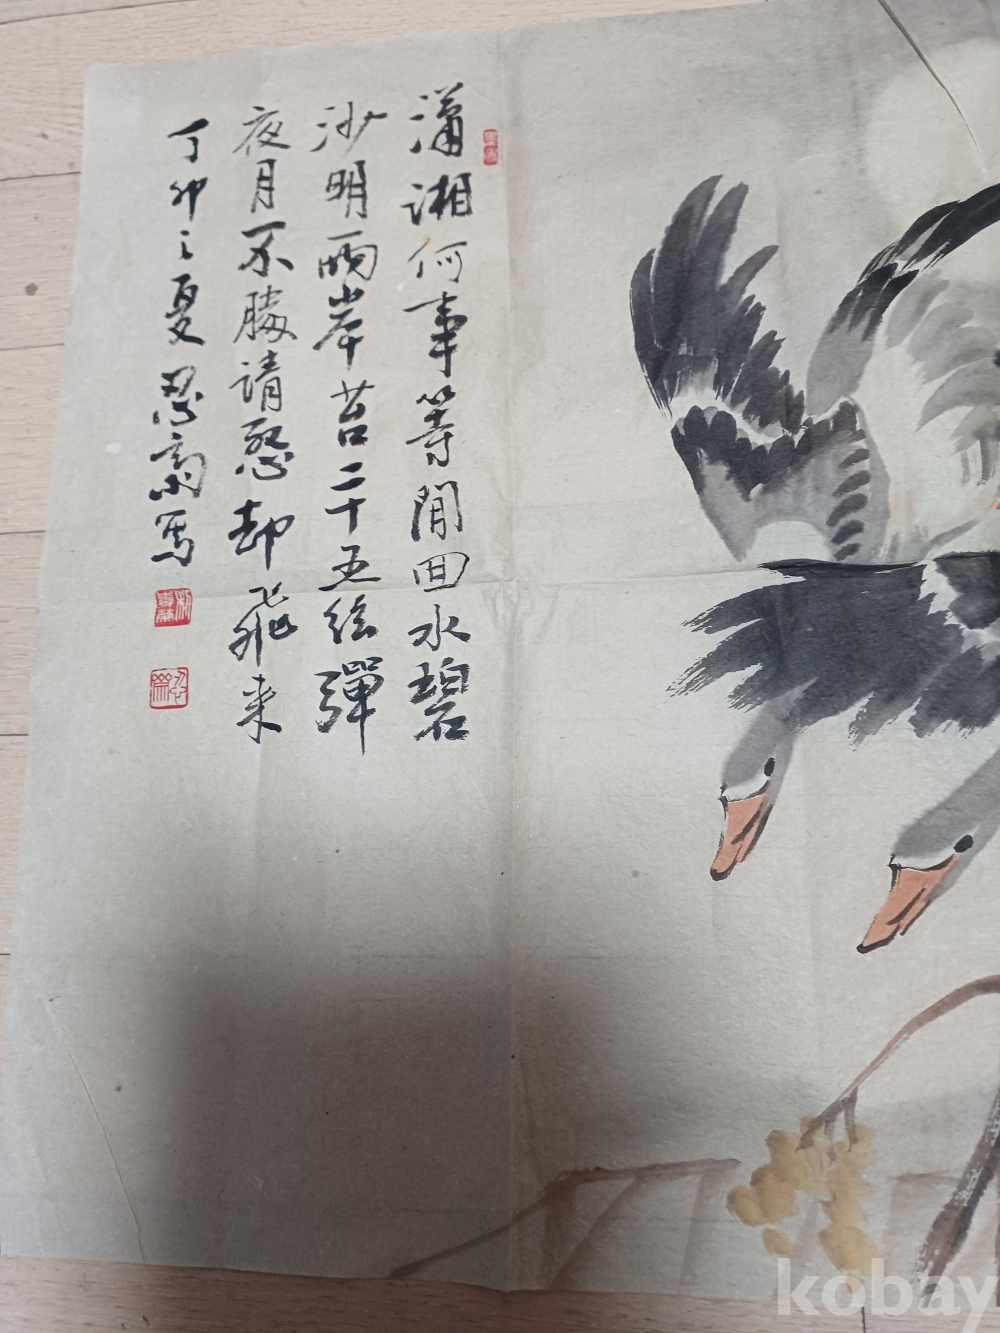 瀟湘何事等閒回水碧
沙明兩岸苔二十五絃彈
夜月不勝請怨却飛来
丁卯之夏忍齋写
kobay